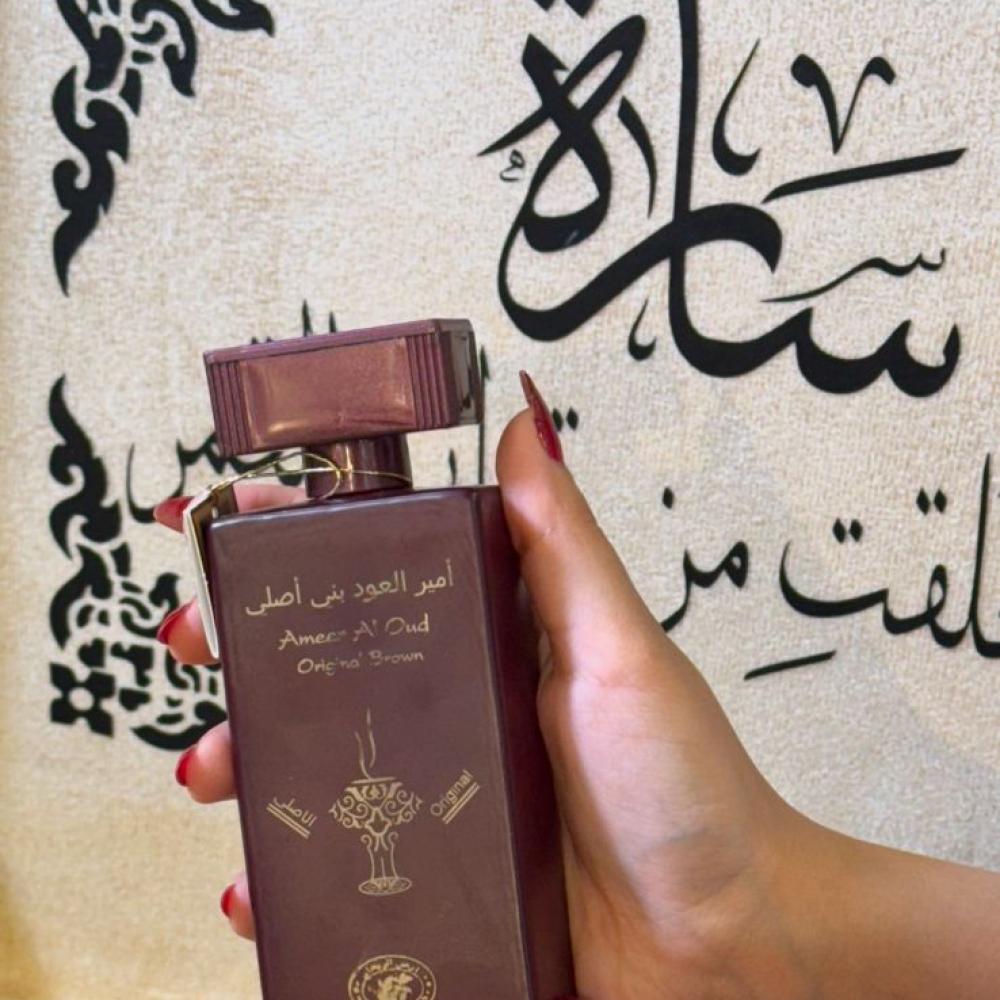 سارة
خلقت من
القمر
أمير العود بني أصلي
Ameer Al Oud
Original Brown
الأصلي
Original